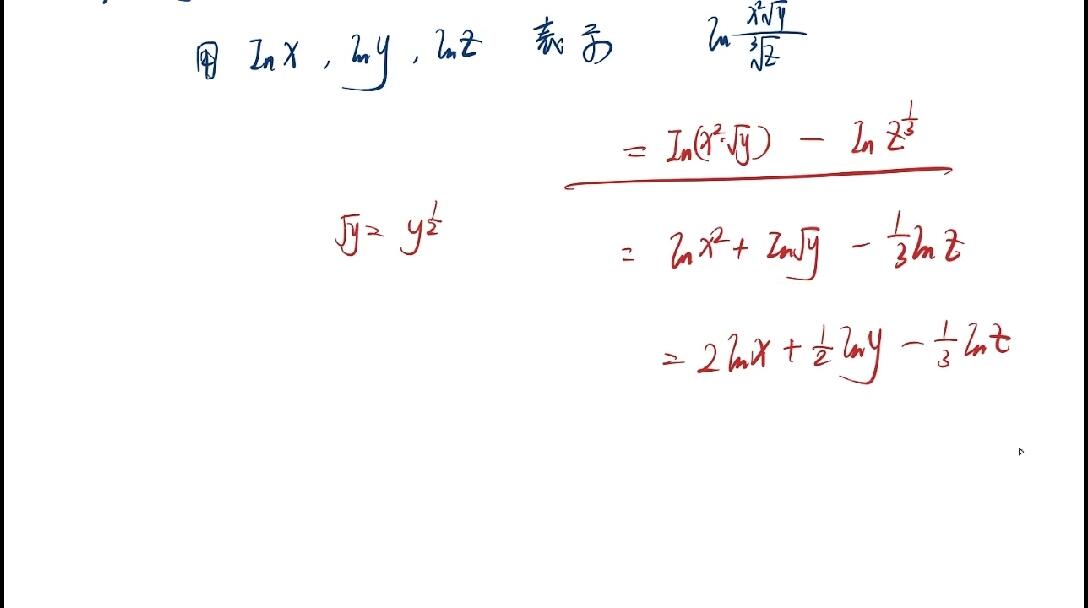 用 lnx , lny , lnz 表示 ln x²√y/∛z
= ln(x²·√y) - ln z^{1/3}
√y = y^{1/2}
= lnx² + ln√y - 1/3 lnz
= 2lnx + 1/2 lny - 1/3 lnz